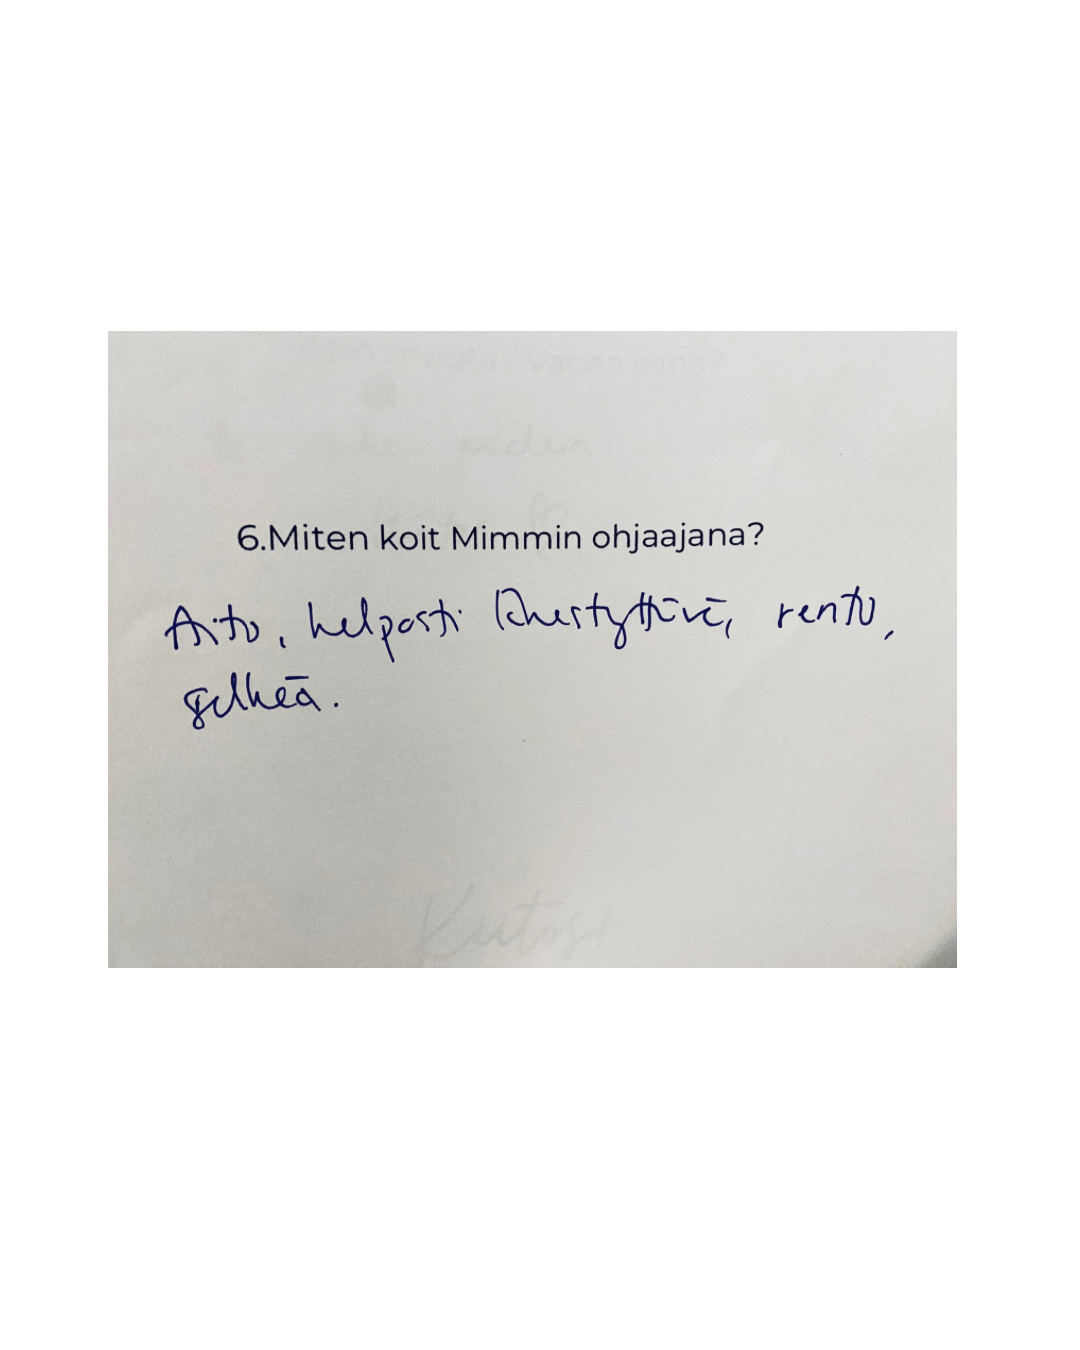 6.Miten koit Mimmin ohjaajana?
Aito, helposti lähestyttävä, rento,
selkeä.
Kiitos!